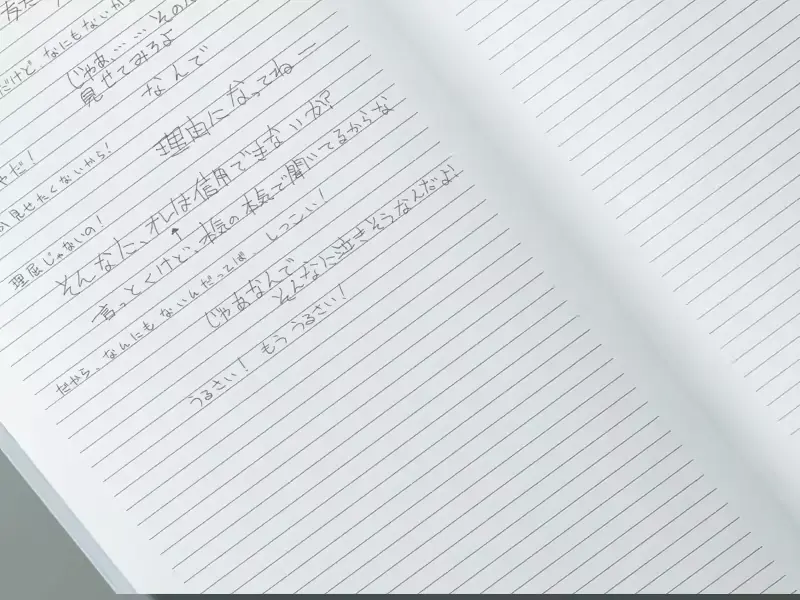 友だ
だけど、なにもないか
じゃあ……その
見せてみろよ
なんで
やだ!
見せたくないから!
理由になってねー
理屈じゃないの!
そんなに、オレは信用できないか?
↑
言っとくけど、本気の本気で聞いてるからな
だから、なんにもないんだってば しつこい!
じゃあなんで
そんなに泣きそうなんだよ!
うるさい! もううるさい!